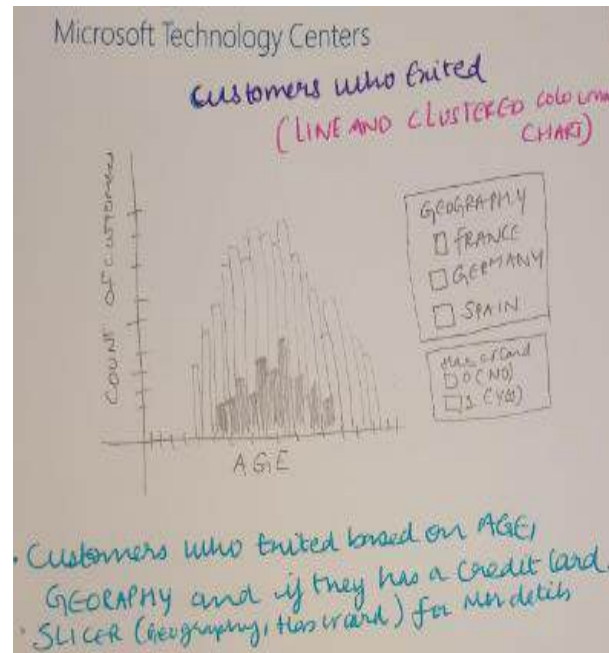 Microsoft Technology Centers
Customers who Exited
(LINE AND CLUSTERED COLOUMN
CHART)
COUNT OF CUSTOMERS
GEOGRAPHY
FRANCE
GERMANY
SPAIN
Has crCard
0 (NO)
1 (YES)
AGE
• Customers who Exited based on AGE,
GEORAPHY and if they has a Credit Card.
• SLICER (Geography, Hascrcard) for